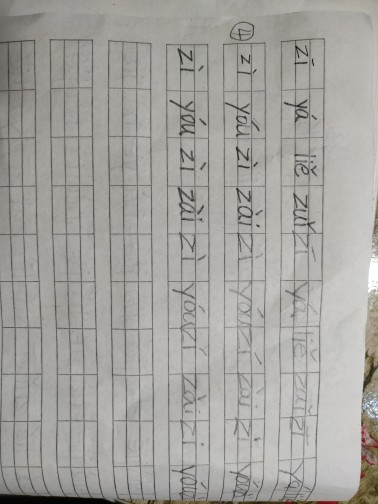 zī yá liě zuǐ zī yá liě zuǐ zī yá
④ zì yóu zì zài zì yóu zì zài zì yóu
zì yóu zì zài zì yóu zì zài zì yóu